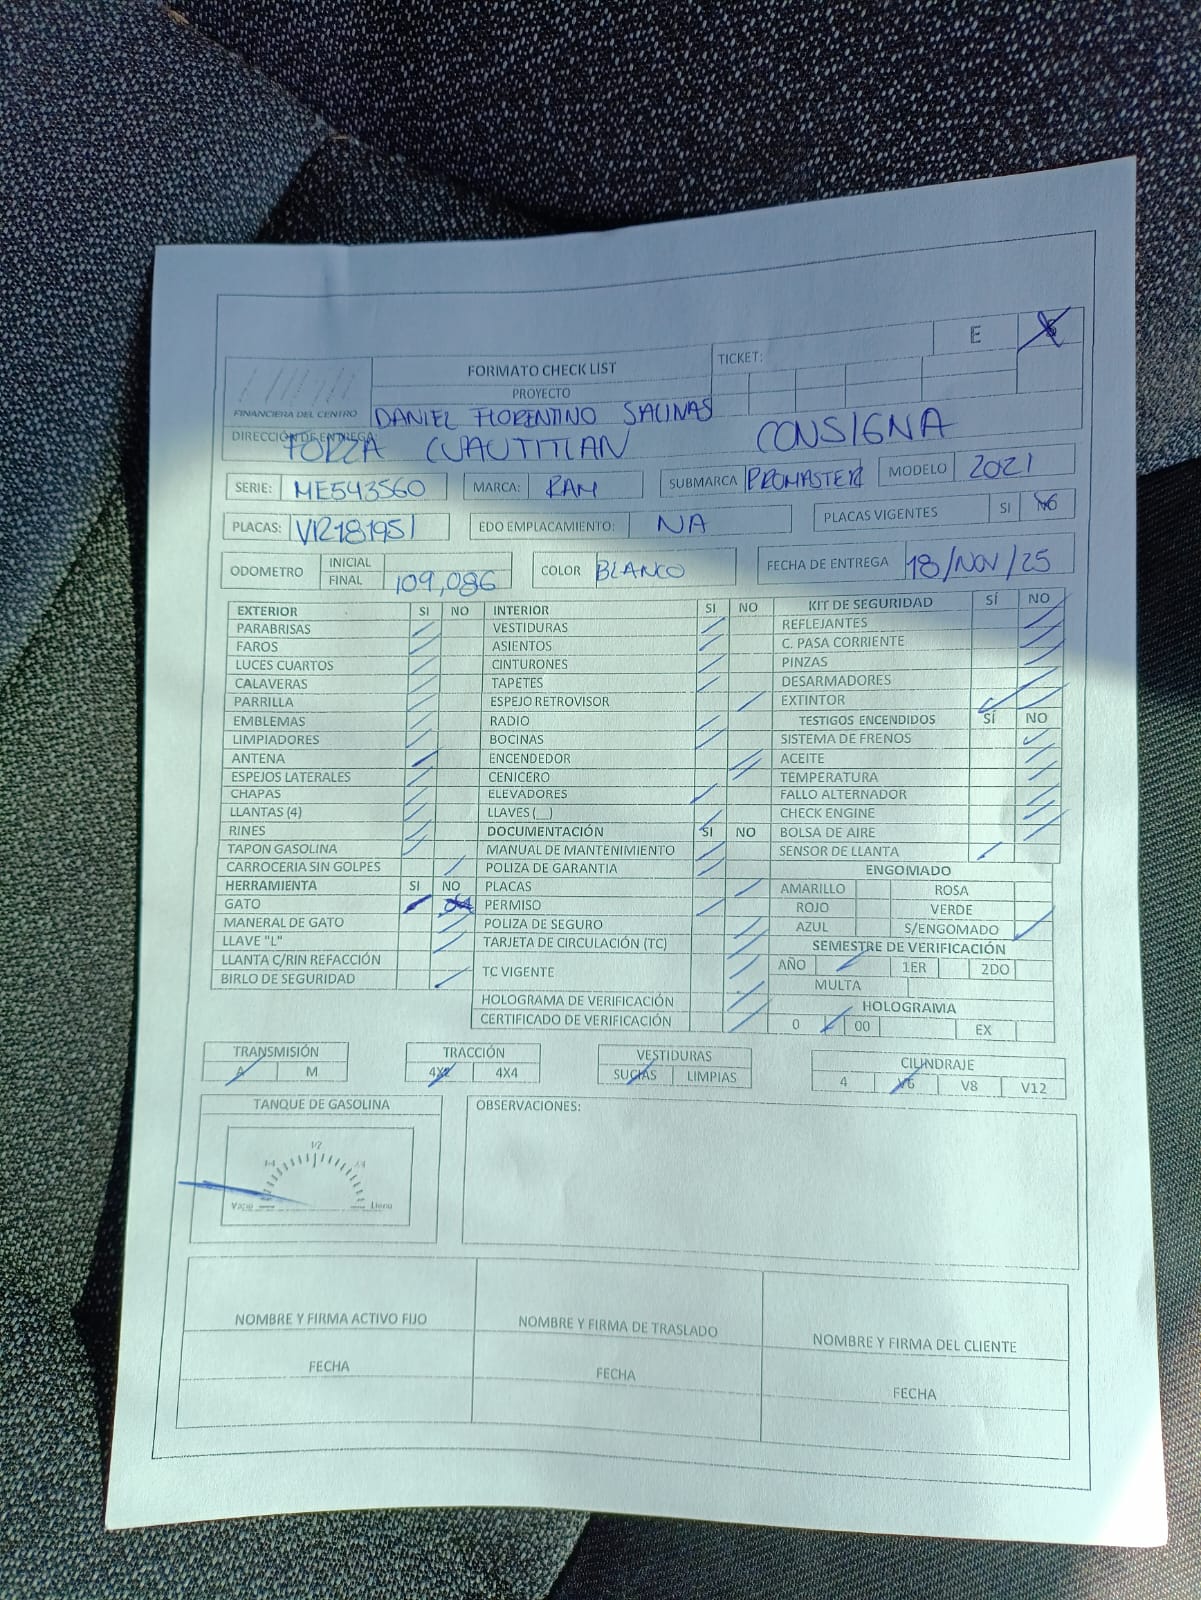 E S
FORMATO CHECK LIST
TICKET:
PROYECTO
FINANCIERA DEL CENTRO
DANIEL FLORENTINO SALINAS
DIRECCIÓN DE ENTREGA
FORZA CUAUTITLAN CONSIGNA
SERIE: ME543560 MARCA: RAM SUBMARCA PROMASTER MODELO 2021
PLACAS: VR18195I EDO EMPLACAMIENTO: NA PLACAS VIGENTES SI NO
ODOMETRO INICIAL
FINAL 109,086 COLOR BLANCO FECHA DE ENTREGA 18/NOV/25
EXTERIOR SI NO
PARABRISAS
FAROS
LUCES CUARTOS
CALAVERAS
PARRILLA
EMBLEMAS
LIMPIADORES
ANTENA
ESPEJOS LATERALES
CHAPAS
LLANTAS (4)
RINES
TAPON GASOLINA
CARROCERIA SIN GOLPES
HERRAMIENTA SI NO
GATO
MANERAL DE GATO
LLAVE "L"
LLANTA C/RIN REFACCIÓN
BIRLO DE SEGURIDAD
INTERIOR SI NO
VESTIDURAS
ASIENTOS
CINTURONES
TAPETES
ESPEJO RETROVISOR
RADIO
BOCINAS
ENCENDEDOR
CENICERO
ELEVADORES
LLAVES (__)
DOCUMENTACIÓN SI NO
MANUAL DE MANTENIMIENTO
POLIZA DE GARANTIA
PLACAS
PERMISO
POLIZA DE SEGURO
TARJETA DE CIRCULACIÓN (TC)
TC VIGENTE
HOLOGRAMA DE VERIFICACIÓN
CERTIFICADO DE VERIFICACIÓN
KIT DE SEGURIDAD SÍ NO
REFLEJANTES
C. PASA CORRIENTE
PINZAS
DESARMADORES
EXTINTOR
TESTIGOS ENCENDIDOS SÍ NO
SISTEMA DE FRENOS
ACEITE
TEMPERATURA
FALLO ALTERNADOR
CHECK ENGINE
BOLSA DE AIRE
SENSOR DE LLANTA
ENGOMADO
AMARILLO ROSA
ROJO VERDE
AZUL S/ENGOMADO
SEMESTRE DE VERIFICACIÓN
AÑO 1ER 2DO
MULTA
HOLOGRAMA
0 00 EX
TRANSMISIÓN
A M
TRACCIÓN
4X2 4X4
VESTIDURAS
SUCIAS LIMPIAS
CILINDRAJE
4 V6 V8 V12
TANQUE DE GASOLINA
1/2
Vacio Lleno
OBSERVACIONES:
NOMBRE Y FIRMA ACTIVO FIJO
FECHA
NOMBRE Y FIRMA DE TRASLADO
FECHA
NOMBRE Y FIRMA DEL CLIENTE
FECHA